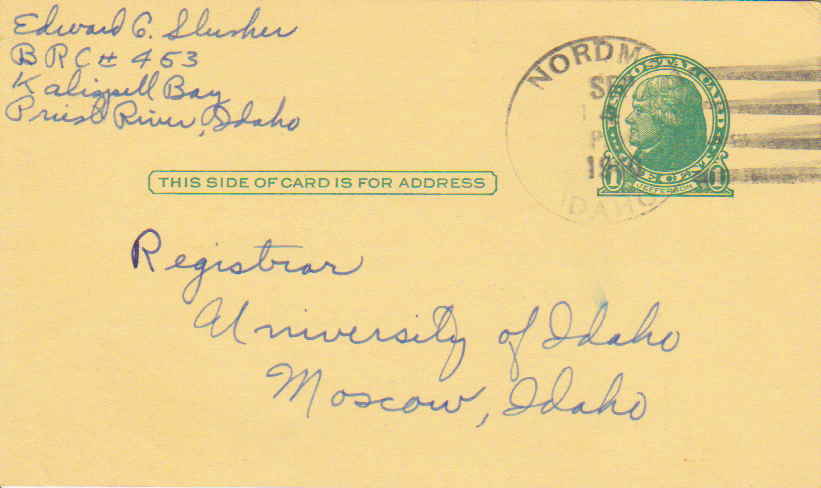 Edward G. Slusher
BRC # 453
Kalispell Bay
Priest River, Idaho
NORDM
IDAHO
U.S. POSTAL CARD
1 ONE CENT 1
JEFFERSON
THIS SIDE OF CARD IS FOR ADDRESS
Registrar
University of Idaho
Moscow, Idaho